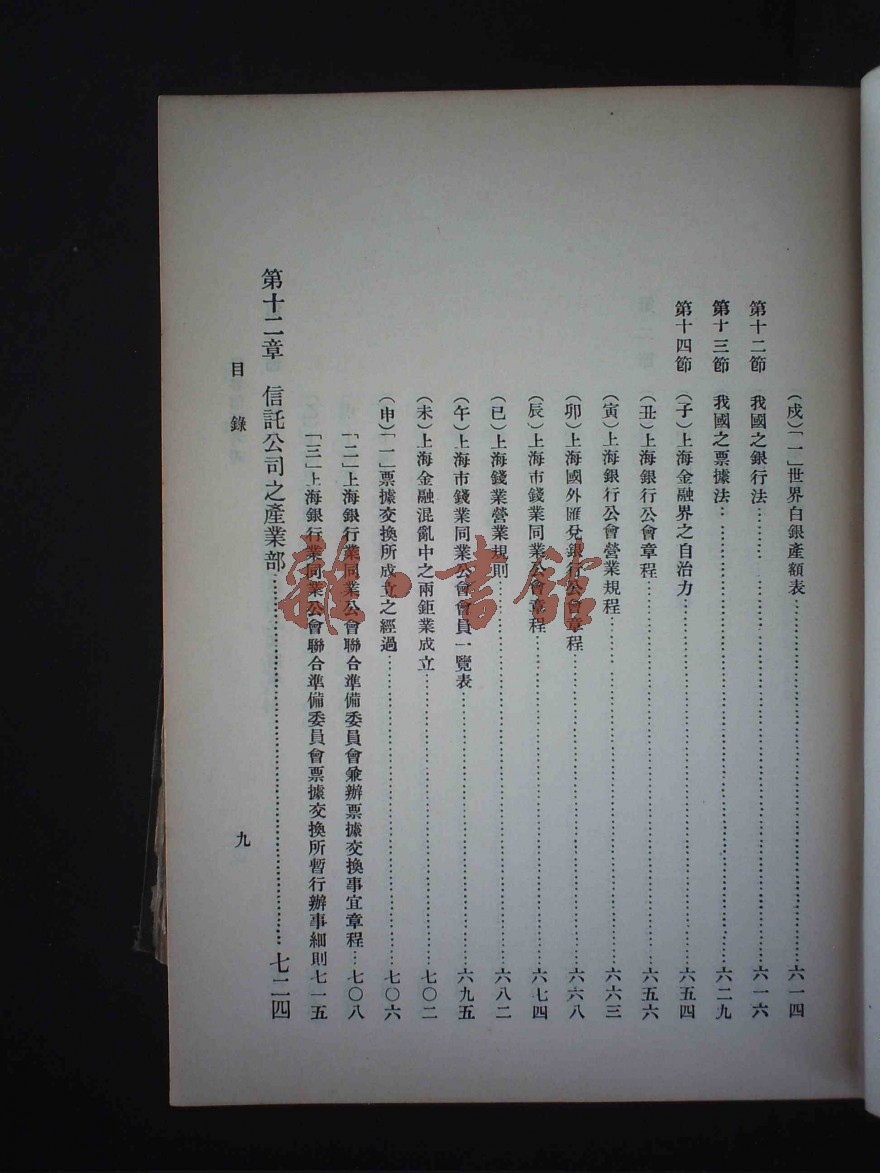 (戌)「一」世界白銀產額表……六一四
第十二節　我國之銀行法……六一六
第十三節　我國之票據法……六二九
第十四節　(子)上海金融界之自治力……六五四
(丑)上海銀行公會章程……六五六
(寅)上海銀行公會營業規程……六六三
(卯)上海國外匯兌銀行公會章程……六六八
(辰)上海市錢業同業公會章程……六七四
(巳)上海錢業營業規則……六八二
(午)上海市錢業同業公會會員一覽表……六九五
(未)上海金融混亂中之兩鉅業成立……七〇二
(申)「一」票據交換所成立之經過……七〇六
「二」上海銀行業同業公會聯合準備委員會兼辦票據交換事宜章程…七〇八
「三」上海銀行業同業公會聯合準備委員會票據交換所暫行辦事細則七一五
第十二章　信託公司之產業部……七二四
目錄
九
雜·書館